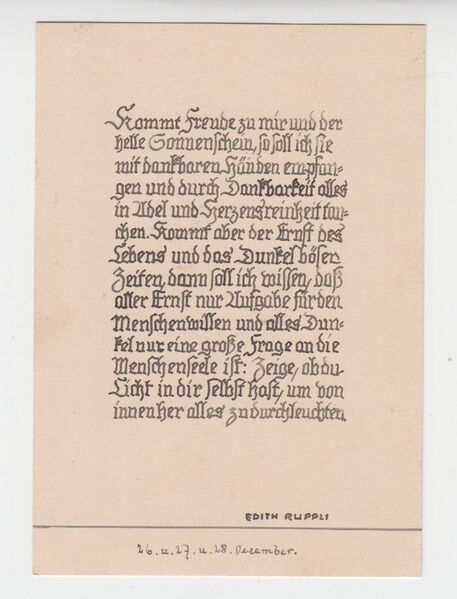 Kommt Freude zu mir und der
helle Sonnenschein, so soll ich sie
mit dankbaren Händen empfan-
gen und durch Dankbarkeit alles
in Adel und Herzensreinheit tau-
chen. Kommt aber der Ernst des
Lebens und das Dunkel böser
Zeiten, dann soll ich wissen, daß
aller Ernst nur Aufgabe für den
Menschenwillen und alles Dun-
kel nur eine große Frage an die
Menschenseele ist: Zeige, ob du
Licht in dir selbst hast, um von
innen her alles zu durchleuchten.
EDITH RUPPLI
26. u. 27. u. 28. Dezember.